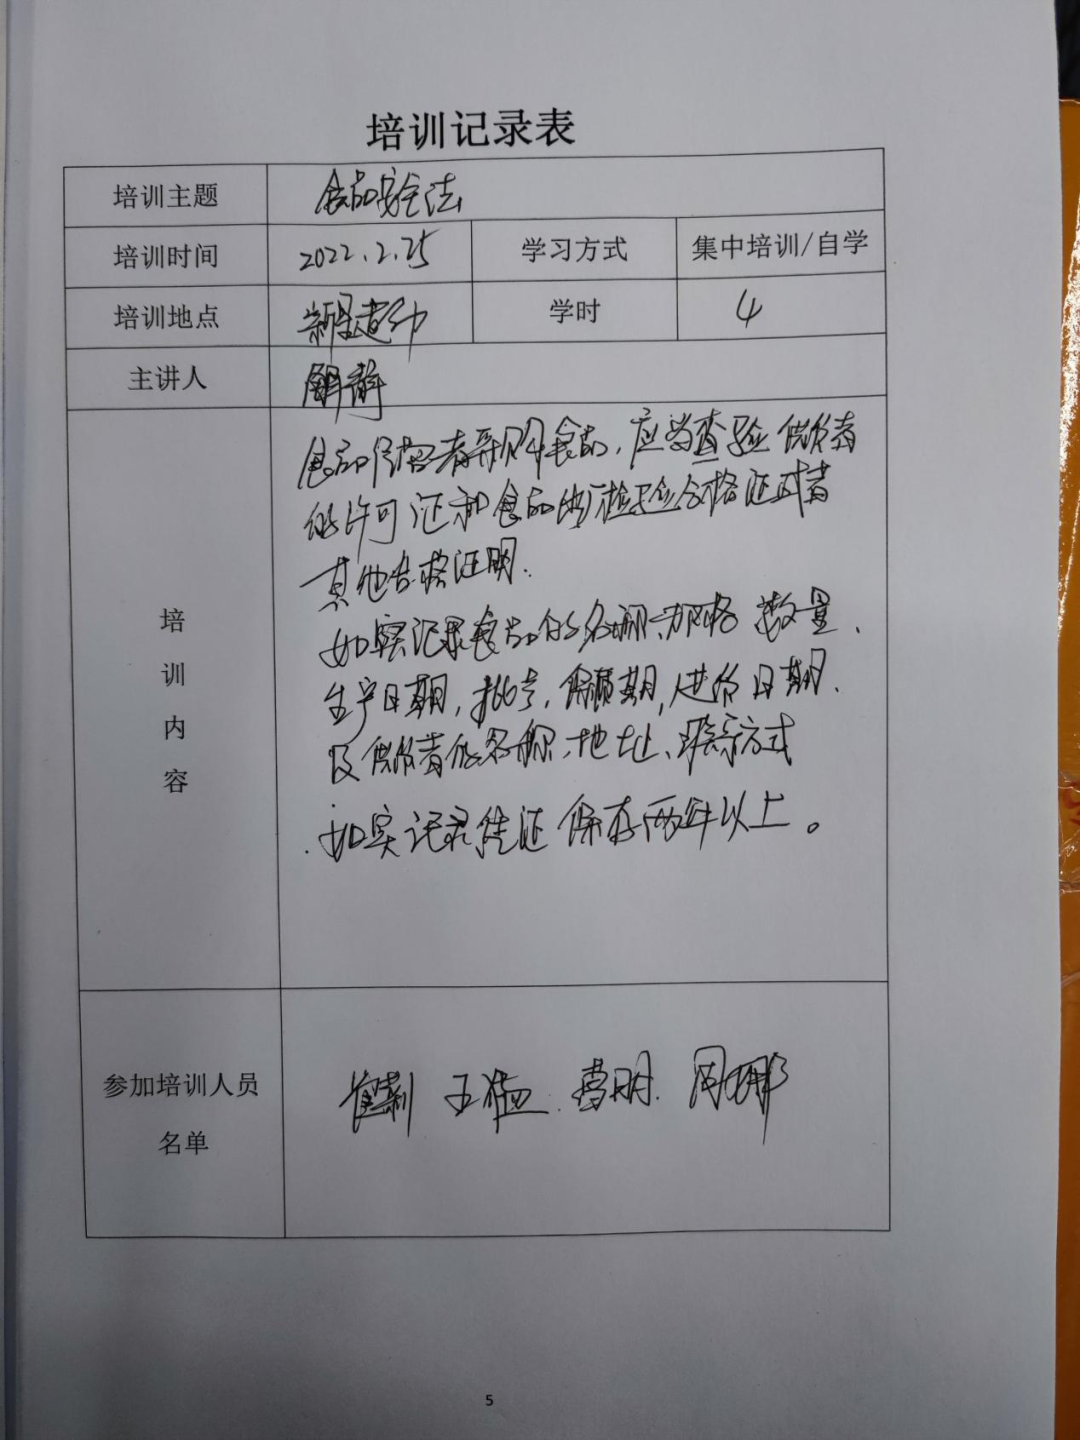 培训记录表
培训主题 食品安全法
培训时间 2022.2.25 学习方式 集中培训/自学
培训地点 学时 4
主讲人 解静
培训内容
食品经营者采购食品,应当查验供货者
的许可证和食品出厂检验合格证或者
其他合格证明.
如实记录食品的名称、规格 数量、
生产日期,批号,保质期,进货日期.
及供货者的名称、地址、联系方式
如实记录凭证保存两年以上。
参加培训人员
名单
崔莉 王猛 曹明 周娜
5